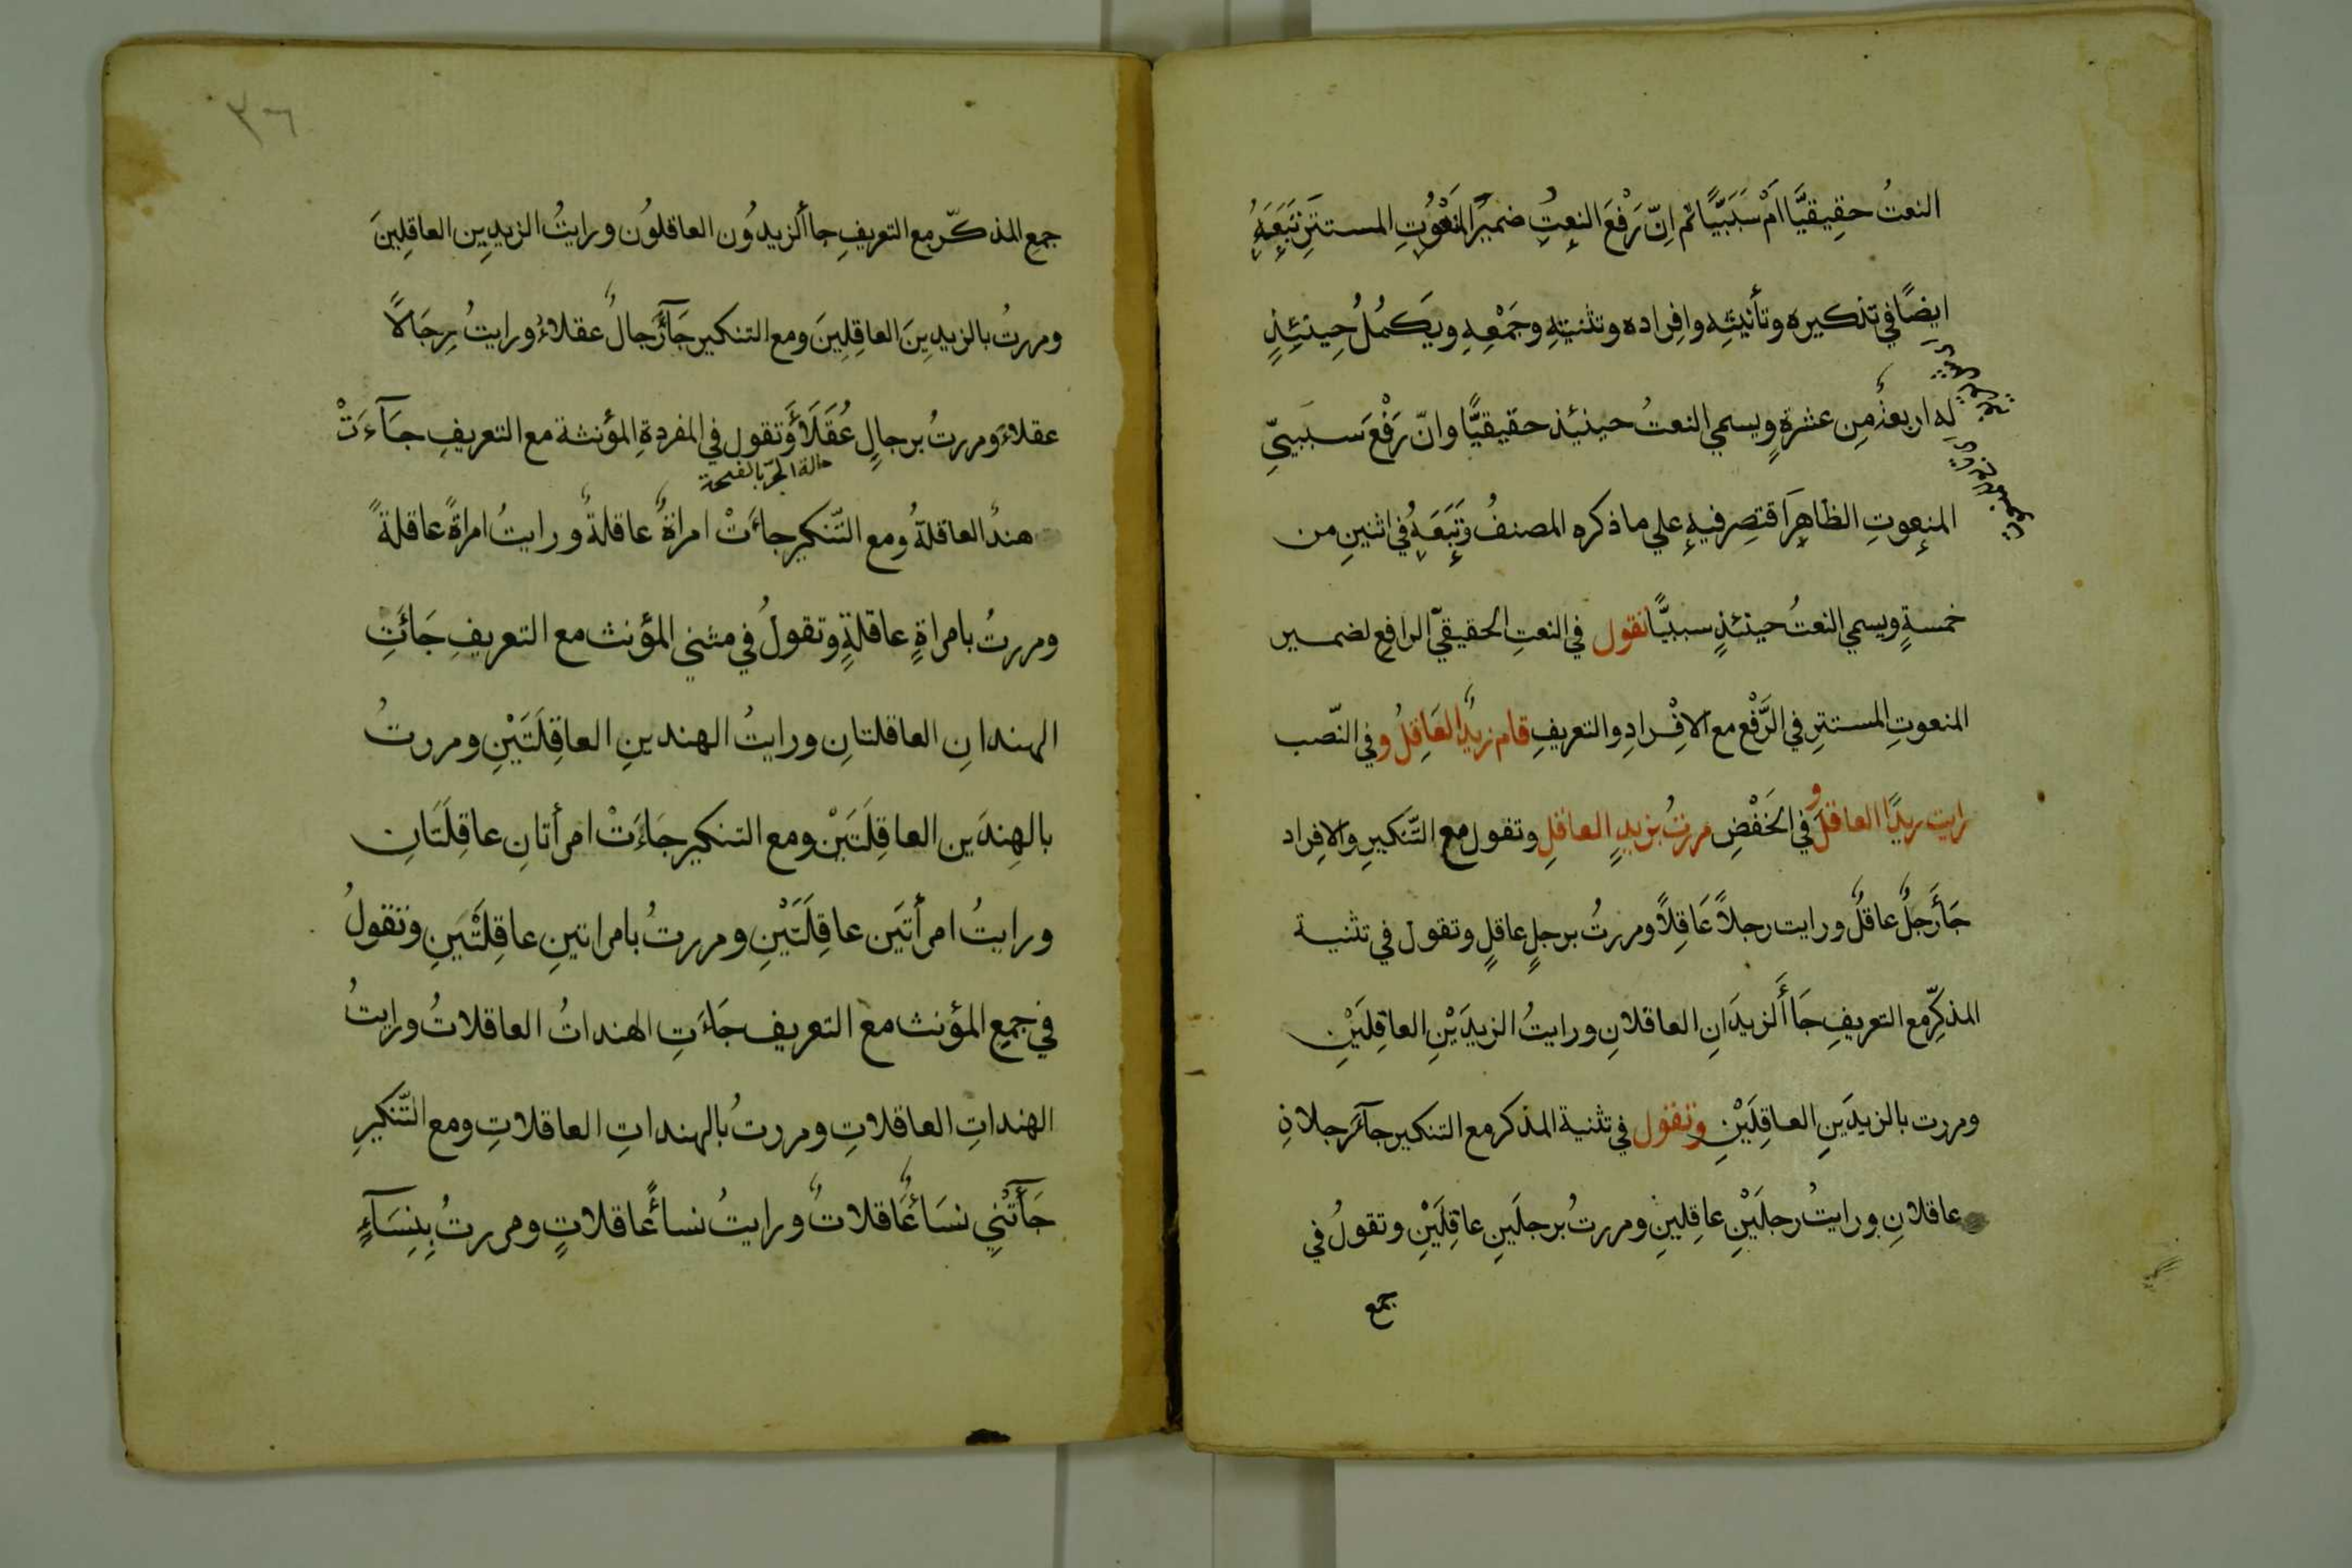 النعتُ حقِيقيًّا اَمْ سَبَبيًّا ثم اِنّ رَفْعَ النعتِ ضميرَ المنْعُوتِ المستتِرِ تَبَعَهُ
ايضًا في تذكيره وتأنيثِه وافِراده وتثنيتِهِ وجَمْعِهِ ويَكمُلُ حِينَئِذٍ
له اربعةٌ مِن عشرةٍ ويسمي النعتُ حينئِذ حقيقيًّا وانّ رَفْعَ سببيّ
المنعوتِ الظاهِرَ اقتصِر فيهِ علي ما ذكره المصنفُ وتَبَعَهُ في اثنينِ من
خمسةٍ ويسمي النعتُ حينئذٍ سببيًّا تقول في النعتِ الحقيقيّ الرافعِ لضمير
المنعوتِ المستترِ في الرَّفْعِ مع الافِْرادِ والتعريفِ قام زيدٌ العَاقِلُ وفي النّصب
رايت زيدًا العاقلَ وفي الخَفْضِ مررتُ بزيدٍ العاقلِ وتقول مع التّنكيرِ والافِراد
جَأَرَجلٌ عاقلٌ ورايت رجلاً عَاقِلاً ومررتُ برجلٍ عاقلٍ وتقول في تثنية
المذكِّرِ مع التعريفِ جَاأَلزيدَانِ العاقلانِ ورايتُ الزيدَيْنِ العاقِلَيْنِ
ومررت بالزيدَينِ العاقِلَيْنِ وتقول في تثنية المذكر مع التنكير جآءَرجلانِ
عاقلانِ ورايتُ رجلَيْنِ عاقِلينِ ومررتُ برجلَينِ عاقِلَيْنِ وتقولُ في
جمع
٣٦
جمعِ المذكّر مع التعريفِ جاأَلزيدُون العاقلوُن ورايتُ الزيدِين العاقِلِينَ
ومررتُ بالزيدِينَ العاقِلِينَ ومع التنكير جَآءَرِجالٌ عقلاءُ ورايتُ رِجَالاً
عقلاءَ ومررتُ برجالٍ عُقَلَاءَ وتقول في المفردةِ المؤنثة مع التعريفِ جَآءَتْ
حالة الجرّ بالفتحة
هندُ العاقلةُ ومع التّنكيرِ جاءَتْ امراةٌ عاقلةٌ ورايتُ امراةً عاقلةً
ومررتُ بامراةٍ عاقلةٍ وتقولُ في مثني المؤنث مع التعريفِ جَائَتِ
الهندانِ العاقلتانِ ورايتُ الهندينِ العاقِلَتَيْنِ ومررتُ
بالهِندَين العاقِلَتَيْنِ ومع التنكيرِ جَاءَتْ امرأتانِ عاقِلَتَانِ
ورايتُ امرأتَين عاقِلَتَيْنِ ومررتُ بامراتينِ عاقِلَتَيْنِ وتقولُ
في جمعِ المؤنث مع التعريف جَاءَتِ الهنداتُ العاقلاتُ ورايتُ
الهنداتِ العاقلاتِ ومررتُ بالهنداتِ العاقلاتِ ومع التّنكيرِ
جَآءَتْنِي نسَاءٌ عاقلاتٌ ورايتُ نساءً عاقلاتٍ ومررتُ بِنِسَآءٍ